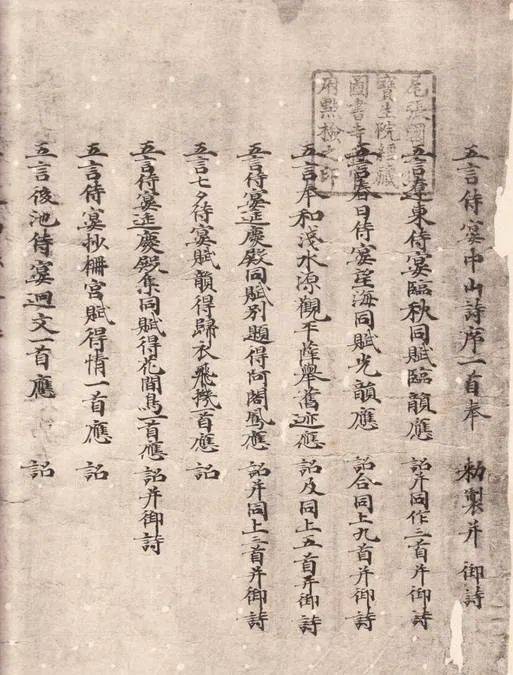 五言侍宴中山詩序一首奉 勅製并 御詩
五言遼東侍宴臨秋同賦臨韻應 詔并同作三首并御詩
五言春日侍宴望海同賦光韻應 詔合同上九首并御詩
五言奉和淺水源觀平薛舉舊迹應 詔及同上五首并御詩
五言侍宴延慶殿同賦別題得阿閣鳳應 詔并同上三首并御詩
五言七夕侍宴賦韻得歸衣飛機一首應 詔
五言侍宴延慶殿集同賦得花間鳥一首應 詔并御詩
五言侍宴抄柵宮賦得情一首應 詔
五言後池侍宴迴文一首應 詔
尾張國
寶生院經藏
圖書寺社官
府點檢之印